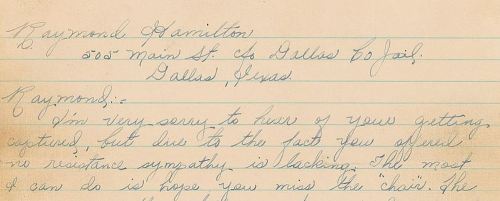 Raymond Hamilton
505 Main St. c/o Dallas Co Jail.
Dallas, Texas
Raymond:-
I'm very sorry to hear of your getting
captured, but due to the fact you offered
no resistance sympathy is lacking. The most
I can do is hope you miss the "chair". The